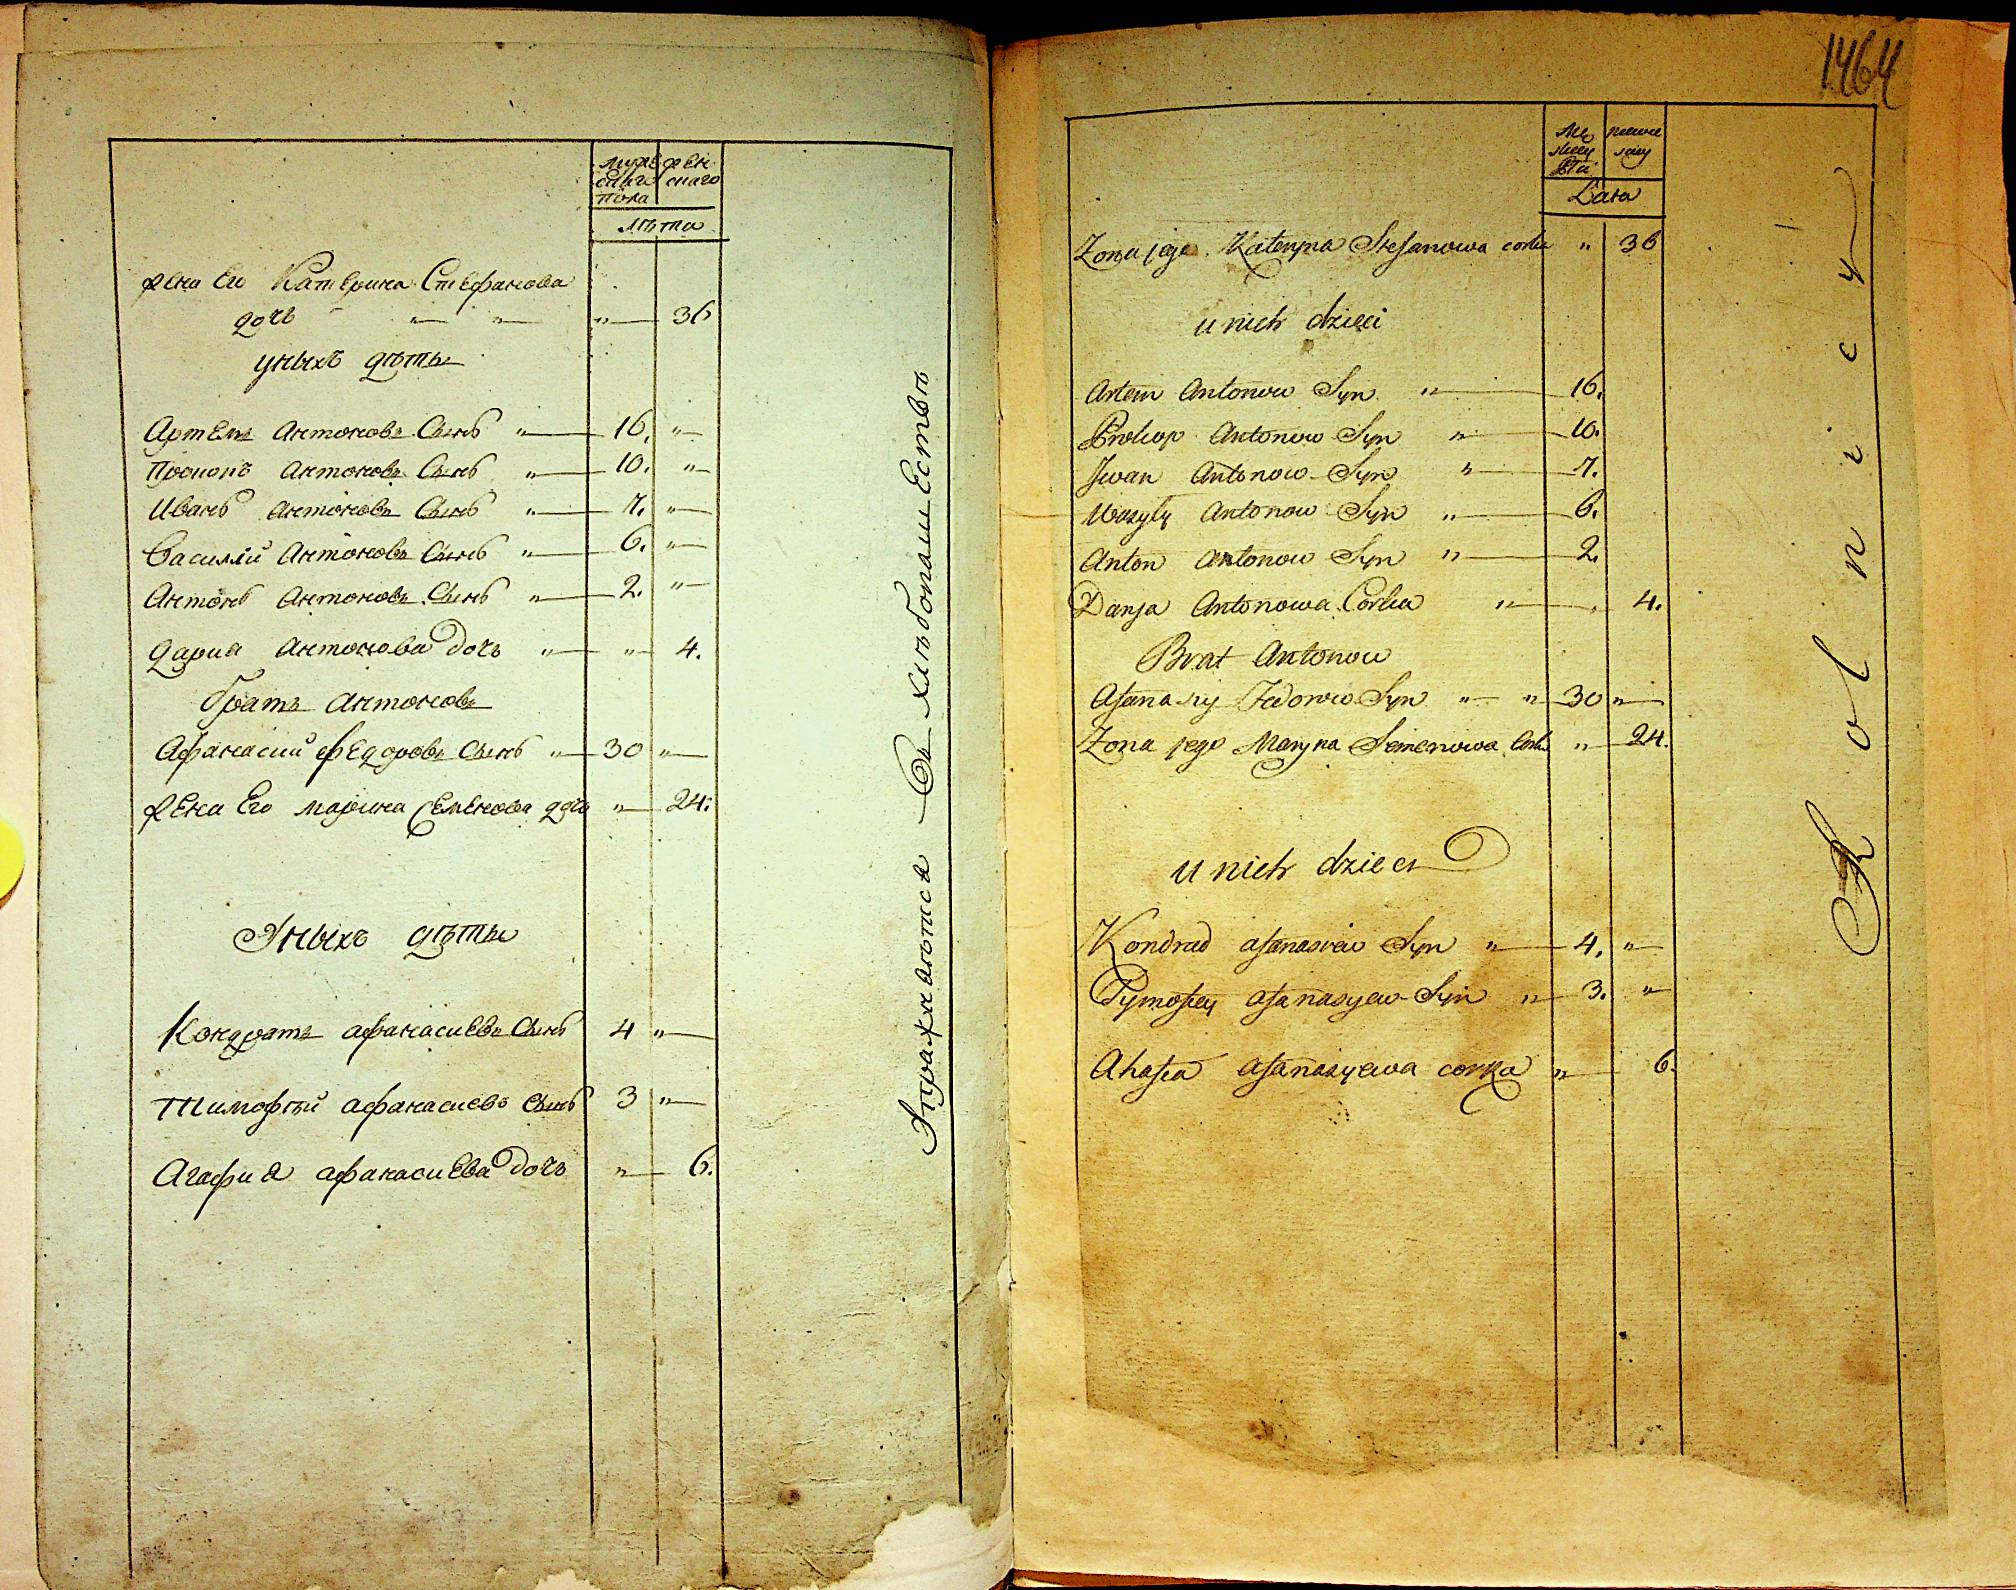 муже
скаго
пола
жен
скаго
лѣта
жена Его Катерина Стефанова
дочь " " " — 36
уныхъ дѣти
Артемъ Антоновъ Сынъ " — 16. "
Прокопъ Антоновъ Сынъ " — 10. "
Иванъ Антоновъ Сынъ " — 7. "
Василий Антоновъ Сынъ " — 6. "
Антонъ Антоновъ Сынъ " — 2. "
Дария Антонова Дочь " — " — 4.
братъ Антоновъ
Афанасий Федоровъ Сынъ " — 30 "
жена Его Марина Семенова дочь " — 24.
Уныхъ дѣти
Кондратъ Афанасиевъ Сынъ 4 "
Тимофѣй Афанасиевъ Сынъ 3 "
Агафия Афанасиева Дочь " — 6.
Упражняются Въ хлѣбопашествѣ
1464
Lata
Zona jego Kateryna Stefanowa corka " 36
u nich dzieci
Artem Antonow Syn " — 16.
Prokop Antonow Syn " — 10.
Jwan Antonow Syn " — 7.
Wasyly Antonow Syn " — 6.
Anton Antonow Syn " — 2.
Darya Antonowa Corka " — 4.
Brat Antonow
Afanasiy Fedorow Syn " — " — 30 "
Zona jego Maryna Semenowa Corka " — 24.
u nich dzieci
Kondrad afanasiew Syn " — 4. "
Tymofiey afanasyew Syn " — 3. "
Ahafia afanasyewa corka " — 6.
Rolnicy